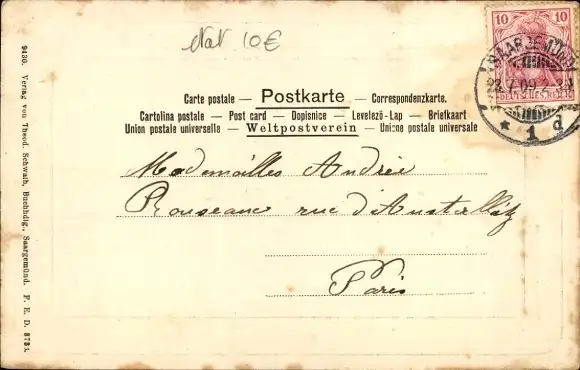 Etat 10€
10 10
DEUTSCHES REICH
SAARGEMÜND
22.7.09.2-3N
* 1 d
Carte postale — Postkarte — Correspondenzkarte.
Cartolina postale — Post card — Dopisnice — Levelező-Lap — Briefkaart
Union postale universelle — Weltpostverein — Unione postale universale
Mademoilles Andrée
Rousseau rue d'Austerlitz
Paris
9430. Verlag von Theod. Schwalb, Buchhdlg., Saargemünd. P. E. D.